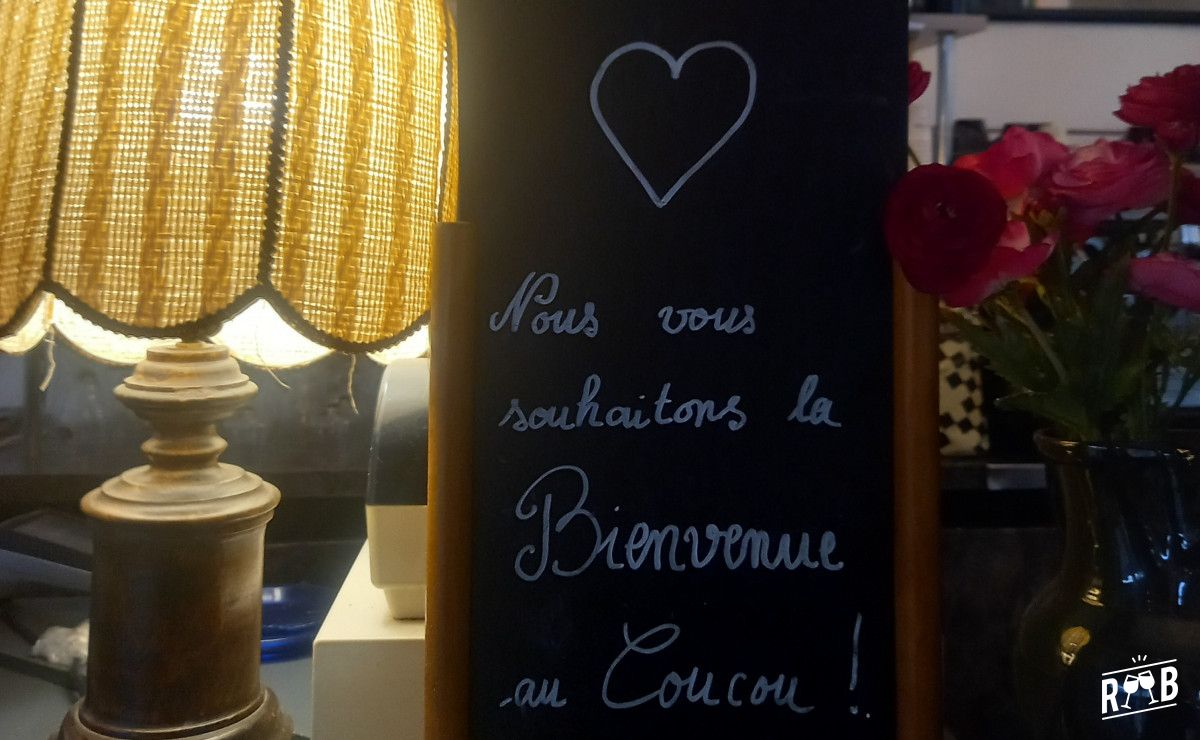 Nous vous
souhaitons la
Bienvenue
au Coucou !
R B